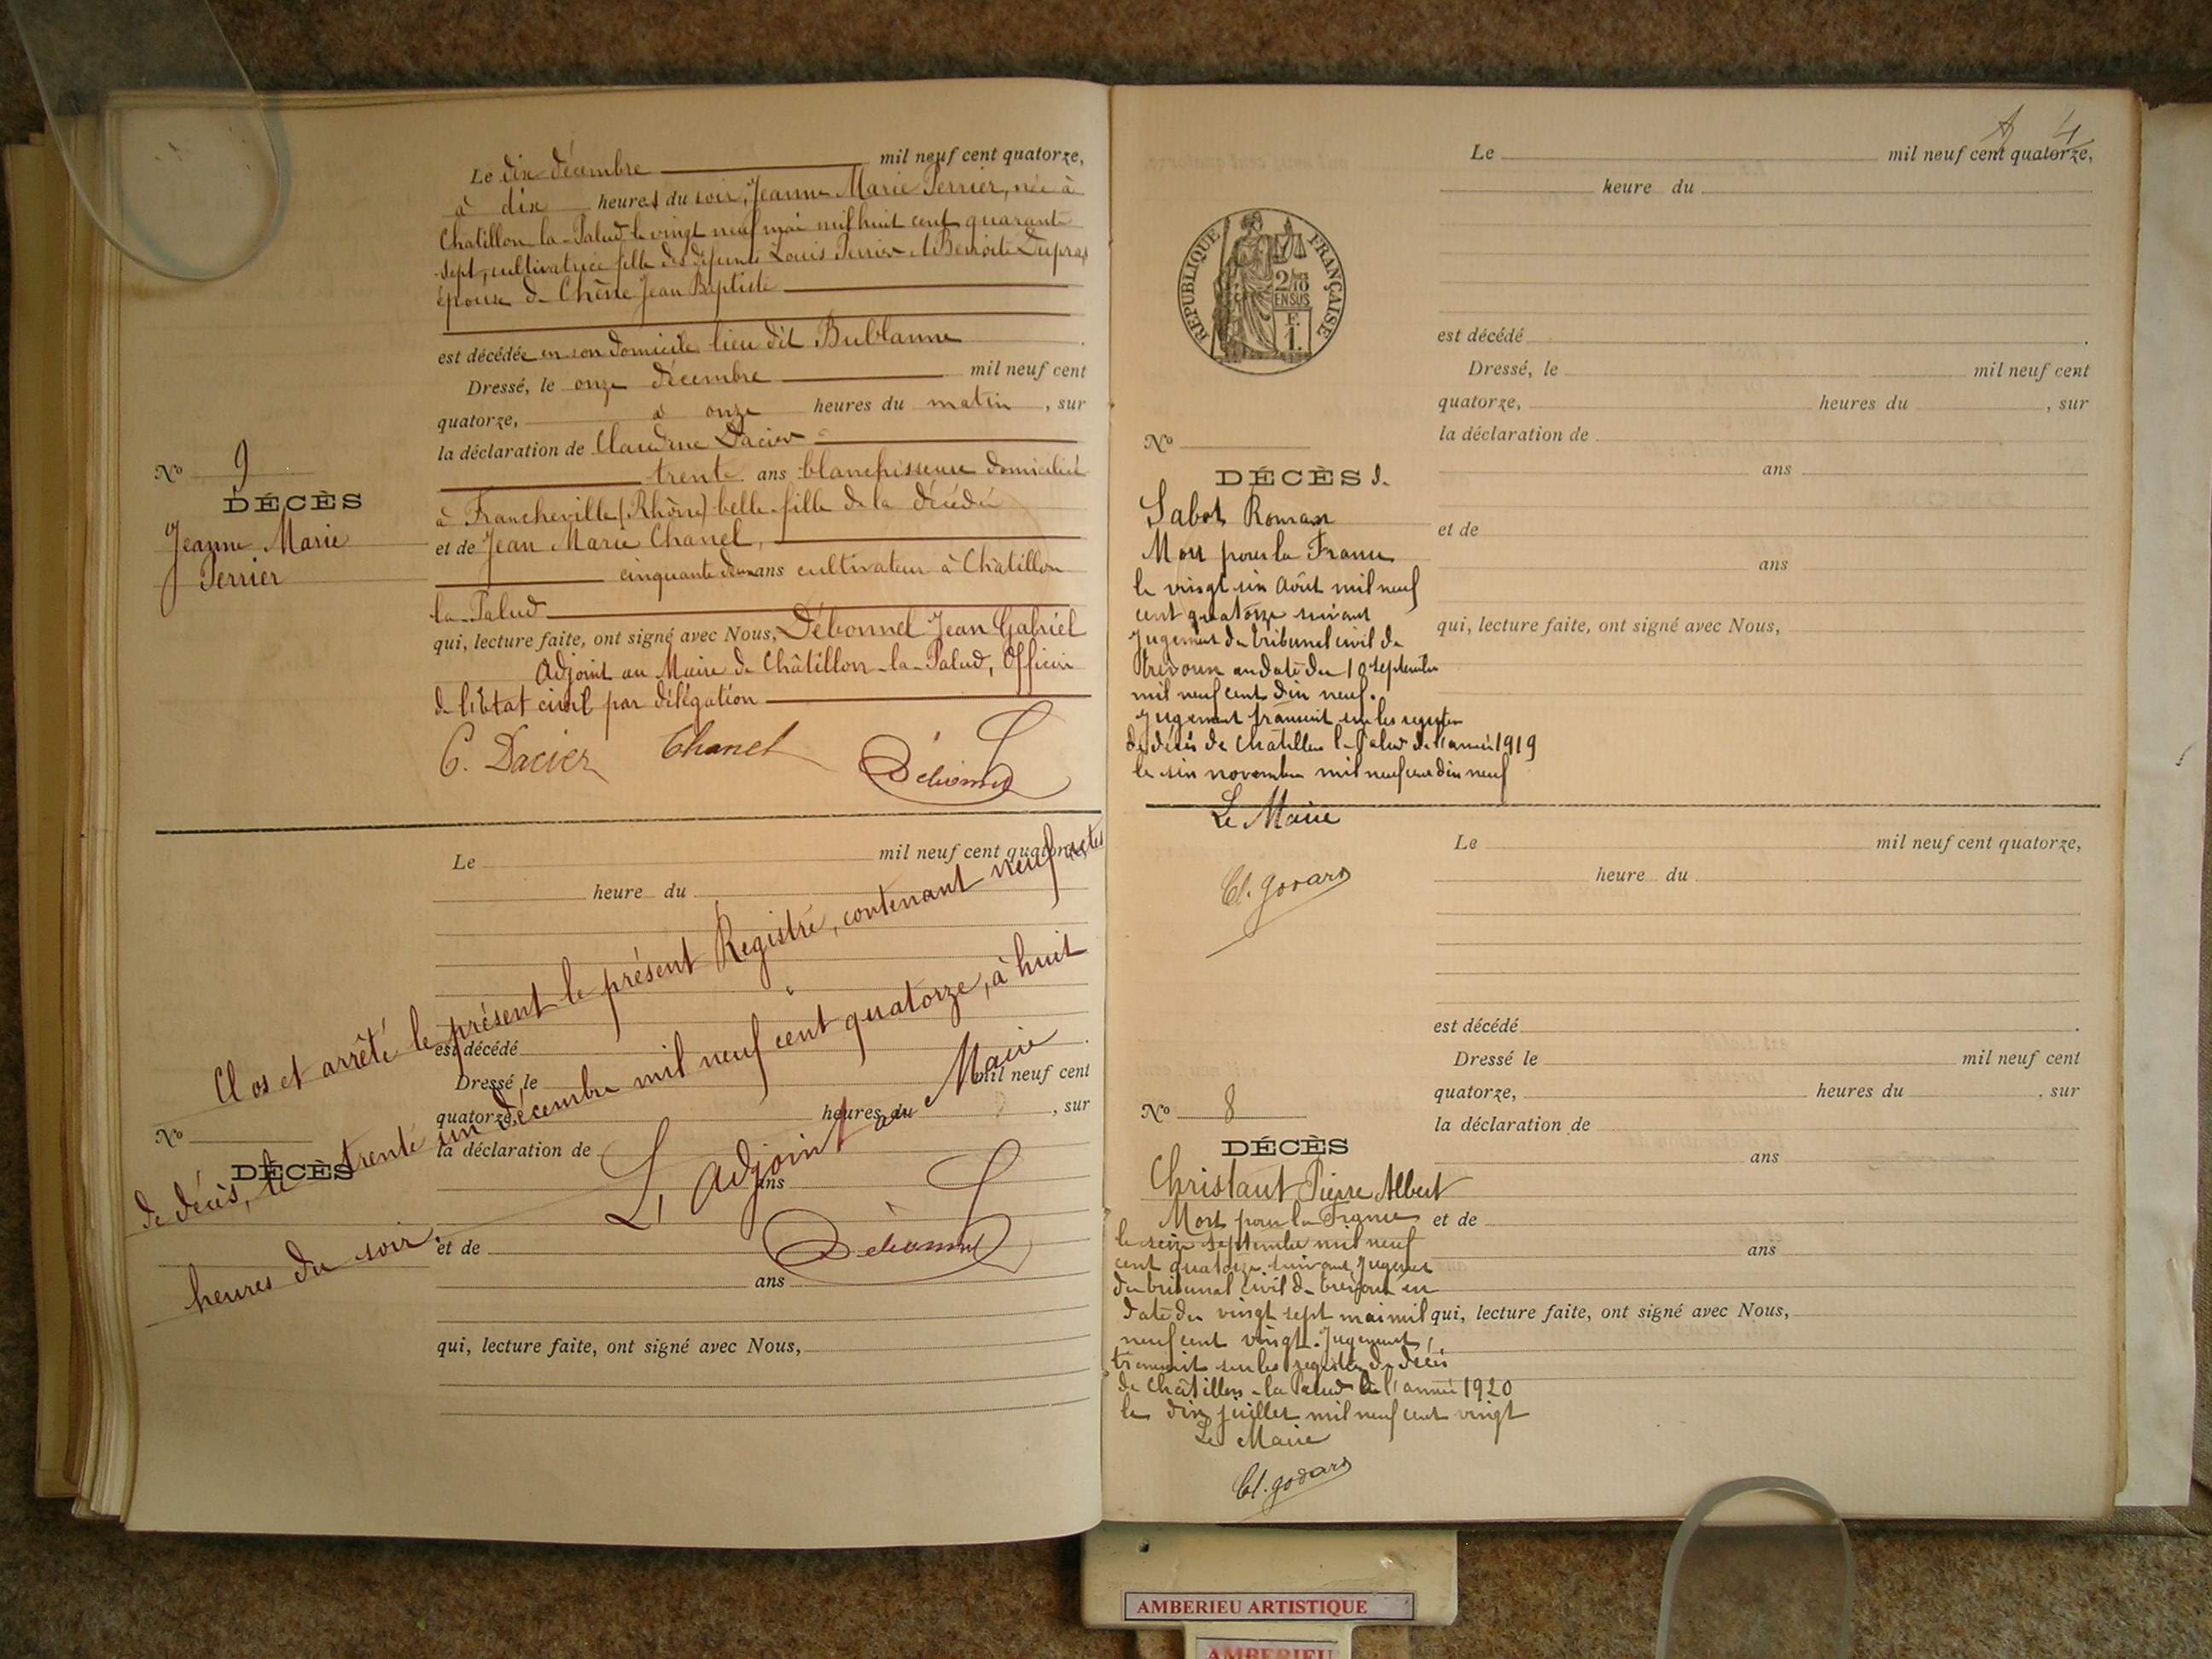 Le dix décembre mil neuf cent quatorze,
à dix heures du soir, Jeanne Marie Perrier, née à
Chatillon-la-Palud le vingt neuf mai mil huit cent quarante
sept, cultivatrice fille des défunts Louis Perrier et Benoite Dupras
épouse de Chêne Jean Baptiste
est décédée en son domicile lieu dit Bublanne
Dressé, le onze décembre mil neuf cent
quatorze, à onze heures du matin, sur
la déclaration de Claudine Dacier
trente ans blanchisseuse domiciliée
à Francheville (Rhône) belle-fille de la décédée
et de Jean Marie Chanel,
cinquante deux ans cultivateur à Châtillon
la-Palud
qui, lecture faite, ont signé avec Nous, Débonnel Jean Gabriel
Adjoint au Maire de Châtillon-la-Palud, Officier
de l'Etat civil par délégation
C. Dacier Chanel Débonnel
No 9
DÉCÈS
Jeanne Marie
Perrier
Le mil neuf cent quatorze,
heure du
est décédé
Dressé, le mil neuf cent
quatorze, heures du , sur
la déclaration de
ans
et de
ans
qui, lecture faite, ont signé avec Nous,
No
DÉCÈS
Clos et arrêté le présent le présent Registre, contenant neuf actes
de décès, le trente un décembre mil neuf cent quatorze, à huit
heures du soir.
L'adjoint au Maire
Débonnel
4
Le mil neuf cent quatorze,
heure du
est décédé
Dressé, le mil neuf cent
quatorze, heures du , sur
la déclaration de
ans
et de
ans
qui, lecture faite, ont signé avec Nous,
RÉPUBLIQUE FRANÇAISE
2/10
EN SUS
F.
1.
No
DÉCÈS d.
Sabot Roman
Mort pour la France
le vingt six Août mil neuf
cent quatorze suivant
Jugement du tribunal civil de
Trevoux en date du 10 septembre
mil neuf cent dix neuf.
Jugement transcrit sur les registres
de décès de Châtillon la Palud de l'année 1919
le six novembre mil neuf cent dix neuf
Le Maire
Cl. Godard
Le mil neuf cent quatorze,
heure du
est décédé
Dressé le mil neuf cent
quatorze, heures du , sur
la déclaration de
ans
et de
ans
qui, lecture faite, ont signé avec Nous,
No 8
DÉCÈS
Christaut Pierre Albert
Mort pour la France
le seize septembre mil neuf
cent quatorze suivant Jugement
du tribunal civil de trevoux en
date du vingt sept mai mil
neuf cent vingt. Jugement
transcrit sur les registres de décès
de Châtillon-la Palud de l'année 1920
le dix juillet mil neuf cent vingt
Le Maire
Cl. Godard
AMBERIEU ARTISTIQUE
AMBERIEU